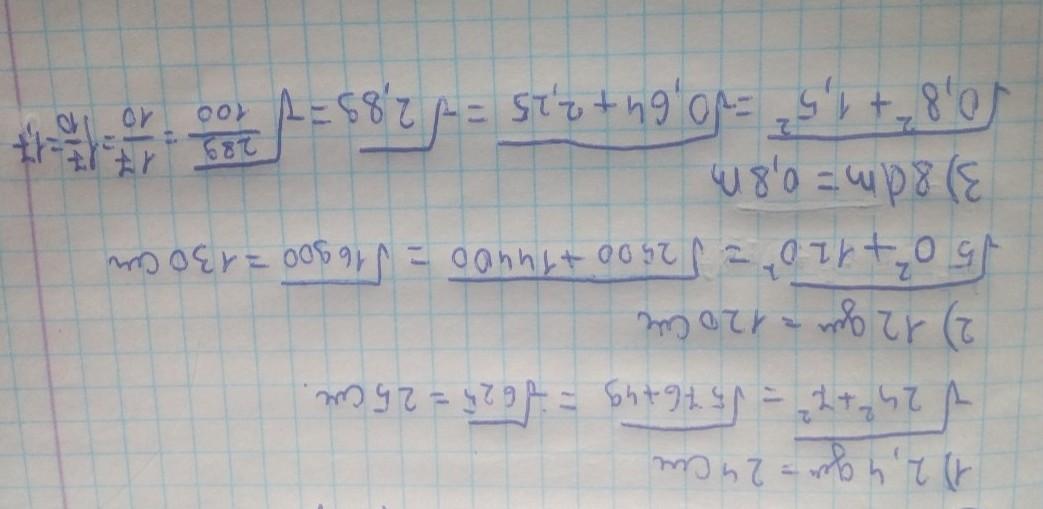 1) 2,4 дм = 24 см
√24²+7² = √576+49 = √625 = 25 см.
2) 12 дм = 120 см
√50²+120² = √2500+14400 = √16900 = 130 см
3) 8dm = 0,8m
√0,8²+1,5² = √0,64+2,25 = √2,89 = √289/100 = 17/10 = 1 7/10 = 1,7